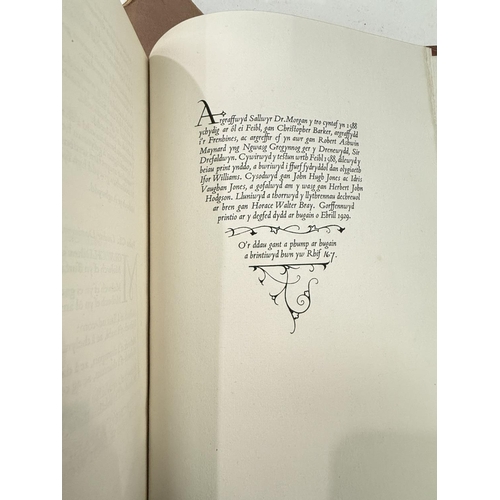 Argraffwyd Sallwyr Dr. Morgan y tro cyntaf yn 1588
ychydig ar ôl ei Feibl, gan Christopher Barker, argraffydd
i'r Frenhines, ac argreffir ef yn awr gan Robert Ashwin
Maynard yng Ngwasg Gregynog ger y Drenewydd, Sir
Drefaldwyn. Cywirwyd y testun wrth Feibl 1588, dilewyd y
beiau print ynddo, a buriwyd i ffurf fydryddol dan olygiaeth
Ifor Williams. Cysodwyd gan John Hugh Jones ac Idris
Vaughan Jones, a gofalwyd am y wasg gan Herbert John
Hodgson. Lluniwyd a thorrwyd y llythrennau dechreuol
ar bren gan Horace Walter Bray. Gorffennwyd
printio ar y degfed dydd ar hugain o Ebrill 1929.
O'r ddau gant a phump ar hugain
a brintiwyd hwn yw Rhif 167.